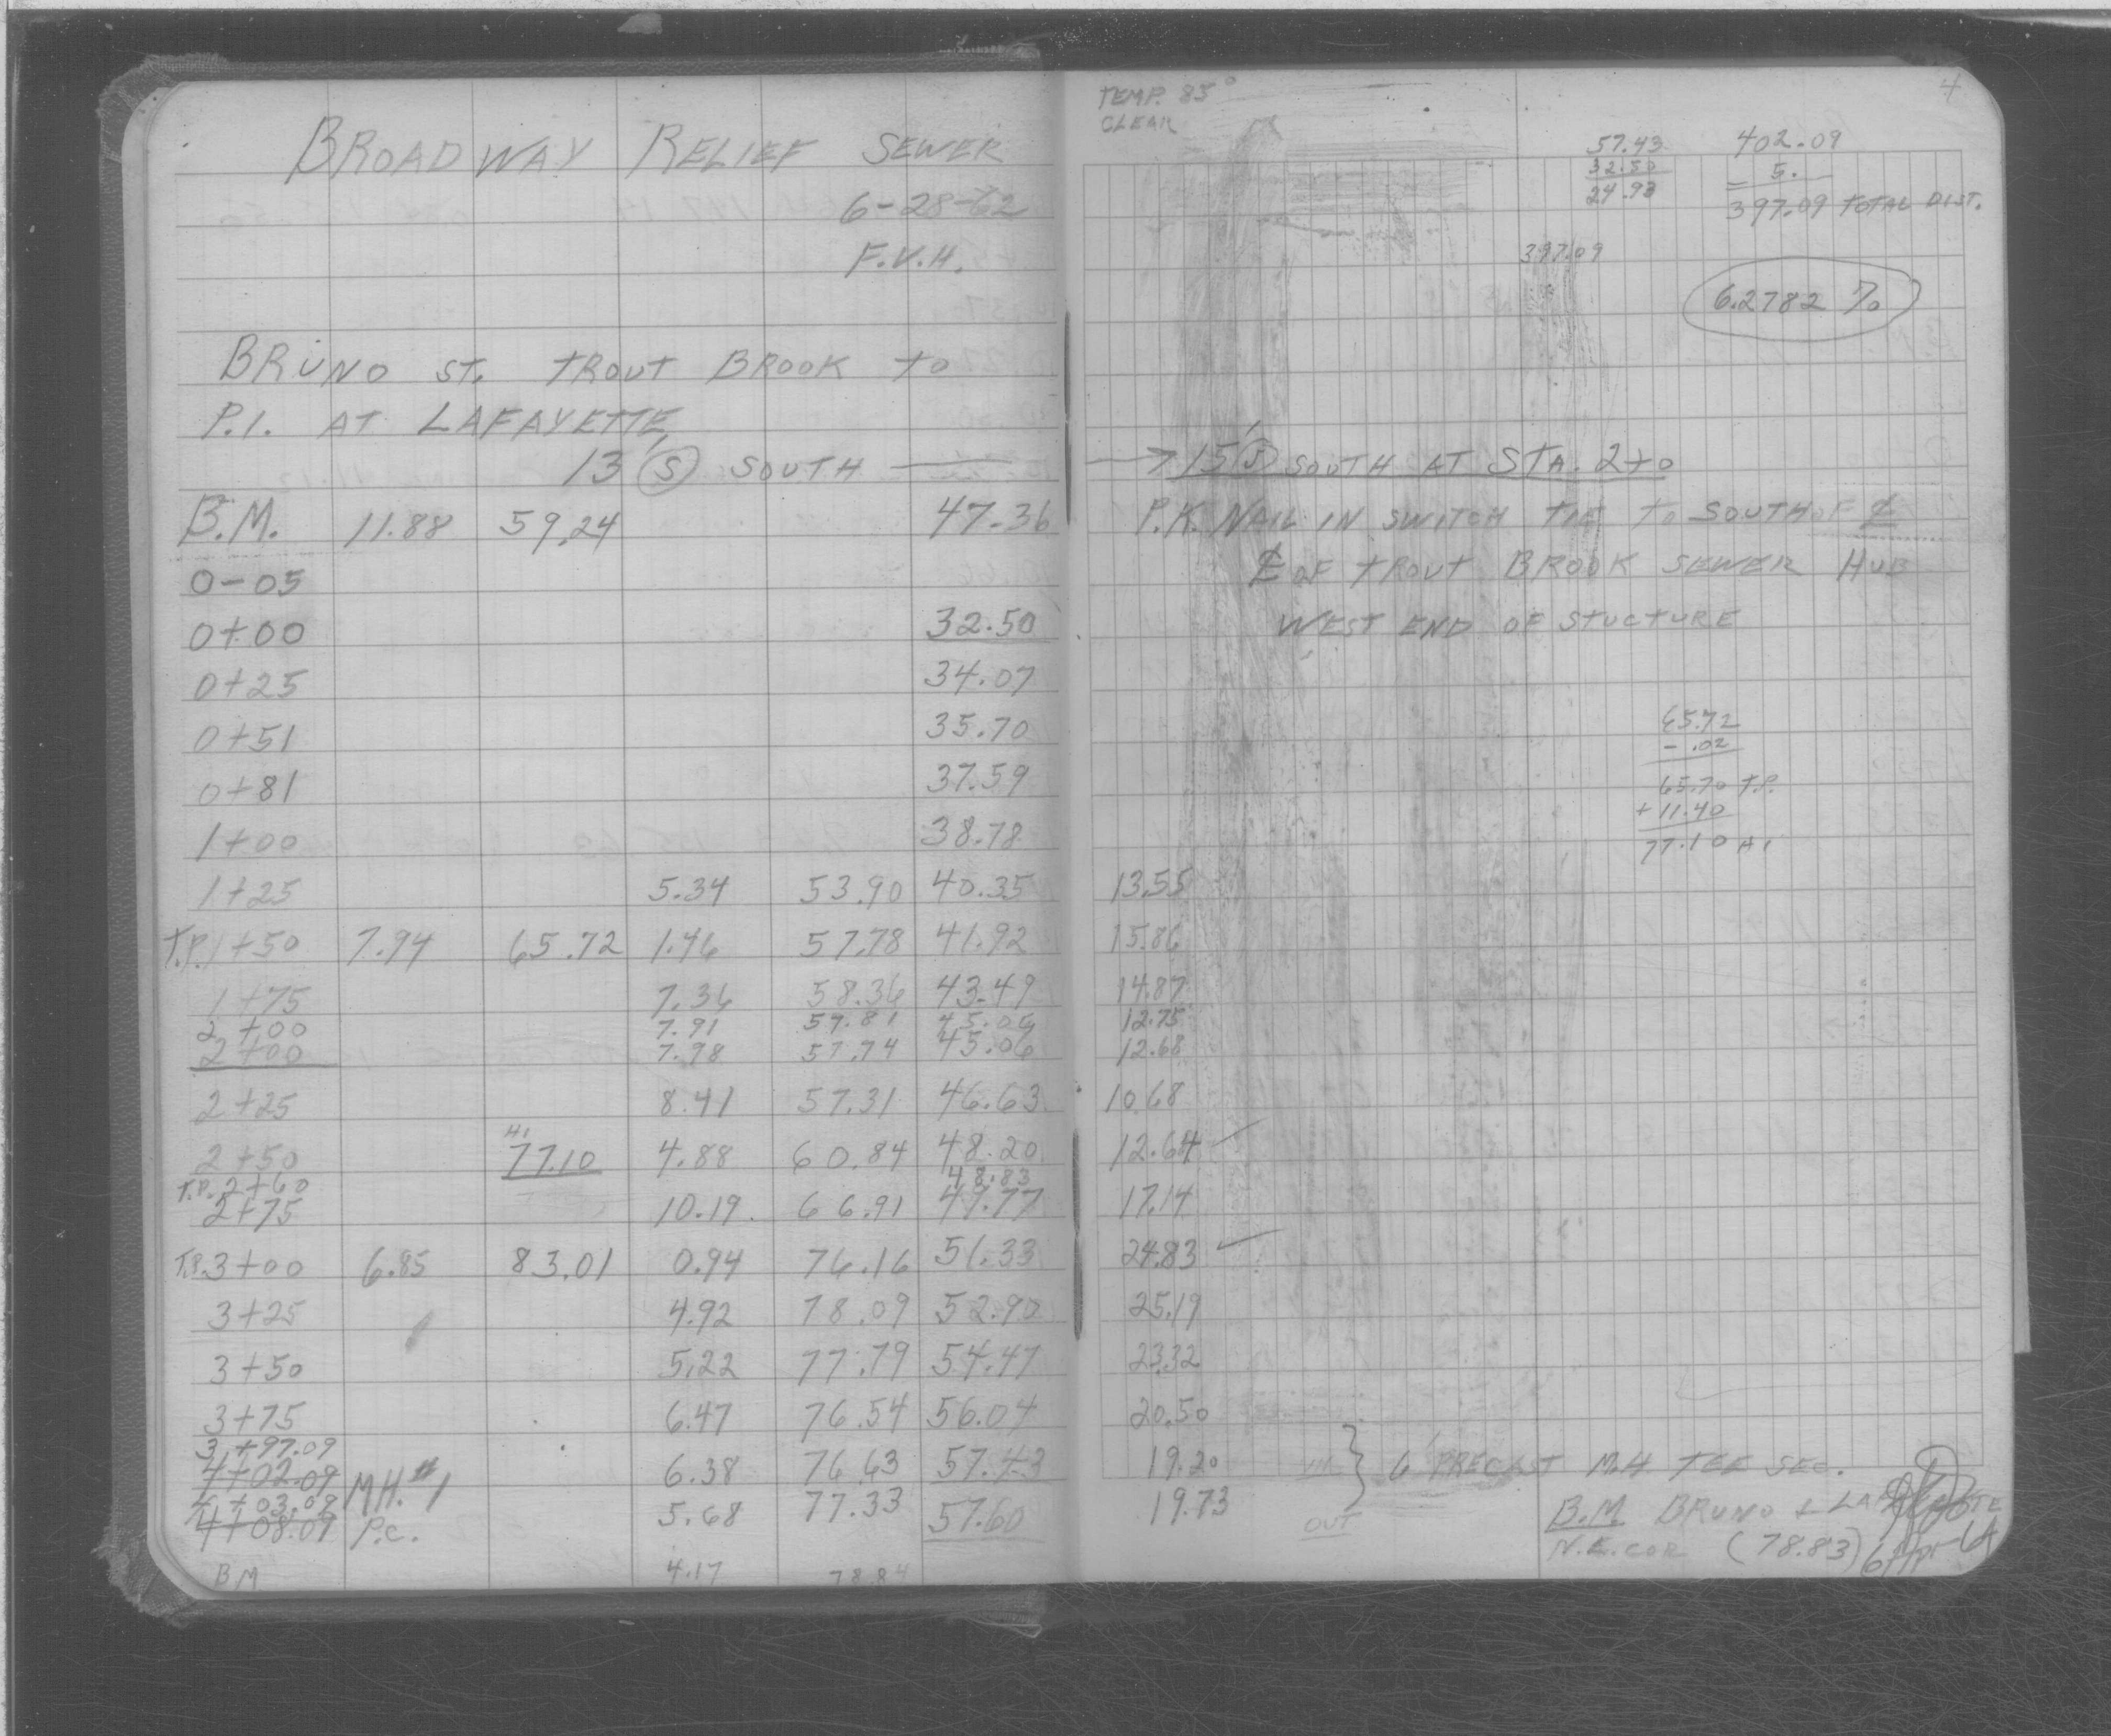 BROADWAY RELIEF SEWER
6-28-62
F.V.H.
BRUNO ST. TROUT BROOK TO
P.I. AT LAFAYETTE
13' (S) SOUTH
B.M. 11.88 59.24 47.36
0-05
0+00 32.50
0+25 34.07
0+51 35.70
0+81 37.59
1+00 38.78
1+25 5.34 53.90 40.35
T.P. 1+50 7.94 65.72 1.46 57.78 41.92
1+75 7.36 58.36 43.49
2+00 7.91 57.81 45.06
2+00 7.98 57.74 45.06
2+25 8.41 57.31 46.63
HI
2+50 77.10 4.88 60.84 48.20
T.P. 2+60 48.83
2+75 10.19 66.91 49.77
T.P. 3+00 6.85 83.01 0.94 76.16 51.33
3+25 4.92 78.09 52.90
3+50 5.22 77.79 54.47
3+75 6.47 76.54 56.04
3+97.09
4+02.09 M.H. #1 6.38 76.63 57.43
4+03.09
4+08.09 P.C. 5.68 77.33 57.60
BM 4.17 78.84
4
TEMP. 85°
CLEAR
57.43 402.09
32.50 - 5.
24.93 397.09 TOTAL DIST.
397.09
6.2782 %
→ 15' (S) SOUTH AT STA. 2+0
P.K. NAIL IN SWITCH TIE TO SOUTH OF ℄
℄ OF TROUT BROOK SEWER HUB
WEST END OF STUCTURE
65.72
- .02
65.70 T.P.
+ 11.40
77.10 HI
13.55
15.86
14.87
12.75
12.68
10.68
12.64
17.14
24.83
25.19
23.32
20.50
19.20 IN } 6' PRECAST M.H TEE SEC.
19.73 OUT
B.M BRUNO + LAFAYETTE
N.E. COR (78.83)